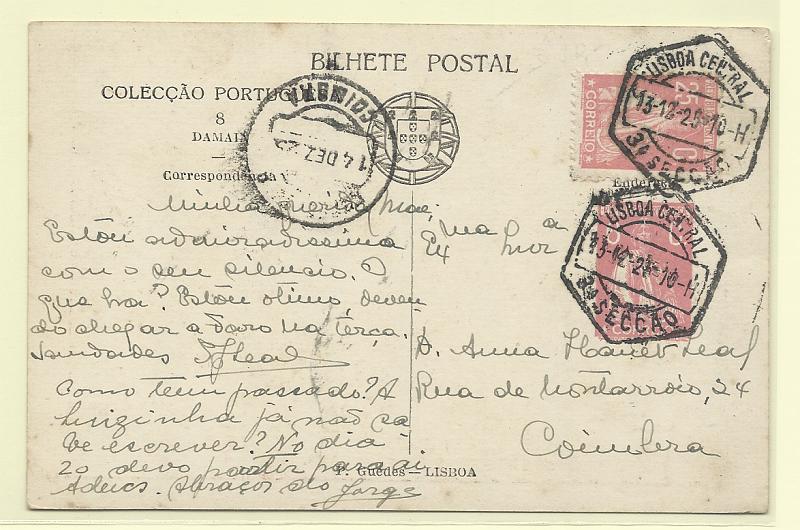 BILHETE POSTAL
COLECÇÃO PORTUGU
8
DAMAI
Correspondencia
COIMBRA
14 DEZ 25
25 C.
CORREIO
LISBOA CENTRAL
13-12-25-10-H
3ª SECCÃO
LISBOA CENTRAL
13-12-25-10-H
3ª SECCÃO
Endere
Minha querida Mae,
Estou admiradissima
com o seu silencio. O
que ha? Estou otimo deven
do chegar a Faro na terça.
Saudades Leal
Como tem passado? A
Luizinha já não sa
be escrever? No dia
20 devo partir para ai
Adeus. Abraços do Jorge
Exma Snra
D. Anna Leal
Rua de Montarroio, 24
Coimbra
F. Guedes—LISBOA